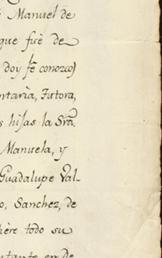 Manuel de
que fué de
doy fé conozco)
ntaria, Tutora,
s hijas la Sra.
Manuela, y
Guadalupe Val-
o, Sanchez, de
iere todo su
utante en de